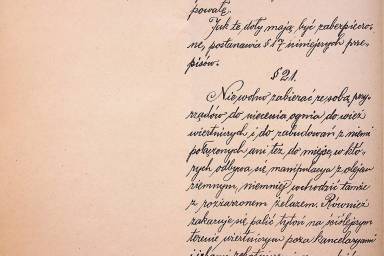 powatę.
Jak te doły mają być zabezpieczo-
ne, postanawia § 17 niniejszych prze-
pisów.
§ 21.
Nie wolno zabierać ze sobą przy-
rządów do niecenia ognia do wież
wiertniczych i do zabudowań z niemi
połączonych ani też do miejsc, w któ-
rych odbywa się manipulacya z olejem
ziemnym, niemniej wchodzić tamże
z rozżarzonem żelazem. Również
zakazuje się palić tytoń na ściślejszym
terenie wiertniczym poza kancelaryami